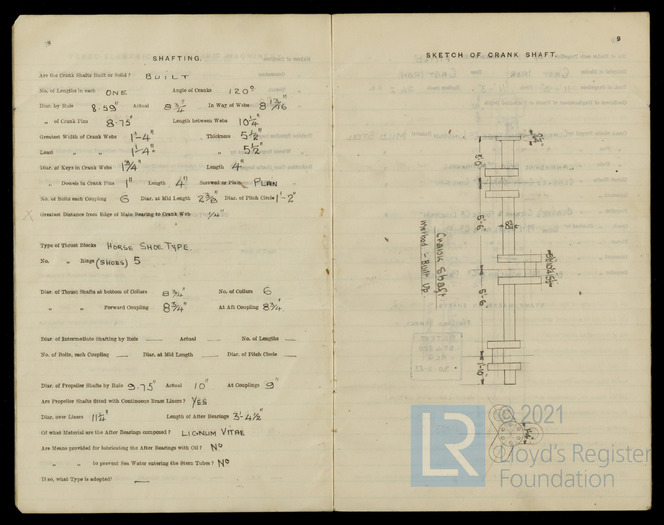 SHAFTING.
Are the Crank Shafts Built or Solid? BUILT
No. of Lengths in each ONE Angle of Cranks 120°
Diar. by Rule 8.59" Actual 8¾" In Way of Webs 8 13/16"
„ of Crank Pins 8.75" Length between Webs 10¼"
Greatest Width of Crank Webs 1'-4" Thickness 5½"
Least „ „ 1'-4" „ 5½"
Diar. of Keys in Crank Webs 1¾" Length 4"
„ Dowels in Crank Pins 1" Length 4" Screwed or Plain PLAIN
No. of Bolts each Coupling 6 Diar. at Mid Length 2⅜" Diar. of Pitch Circle 1'-2"
Greatest Distance from Edge of Main Bearing to Crank Web ¼"
Type of Thrust Blocks HORSE SHOE TYPE.
No. „ Rings (SHOES) 5
Diar. of Thrust Shafts at bottom of Collars 8¾" No. of Collars 6
„ „ Forward Coupling 8¾" At Aft Coupling 8¾"
Diar. of Intermediate Shafting by Rule — Actual — No. of Lengths —
No. of Bolts, each Coupling — Diar. at Mid Length — Diar. of Pitch Circle —
Diar. of Propeller Shafts by Rule 9.75" Actual 10" At Couplings 9"
Are Propeller Shafts fitted with Continuous Brass Liners? YES
Diar. over Liners 11¼" Length of After Bearings 3'-4½"
Of what Material are the After Bearings composed? LIGNUM VITAE
Are Means provided for lubricating the After Bearings with Oil? No
„ „ to prevent Sea Water entering the Stern Tubes? No
If so, what Type is adopted? —
9
SKETCH OF CRANK SHAFT.
5'-6"
5'-6"
1'-10"
Crank Shaft
Method - Built Up.
© 2021
LR
Lloyd's Register
Foundation